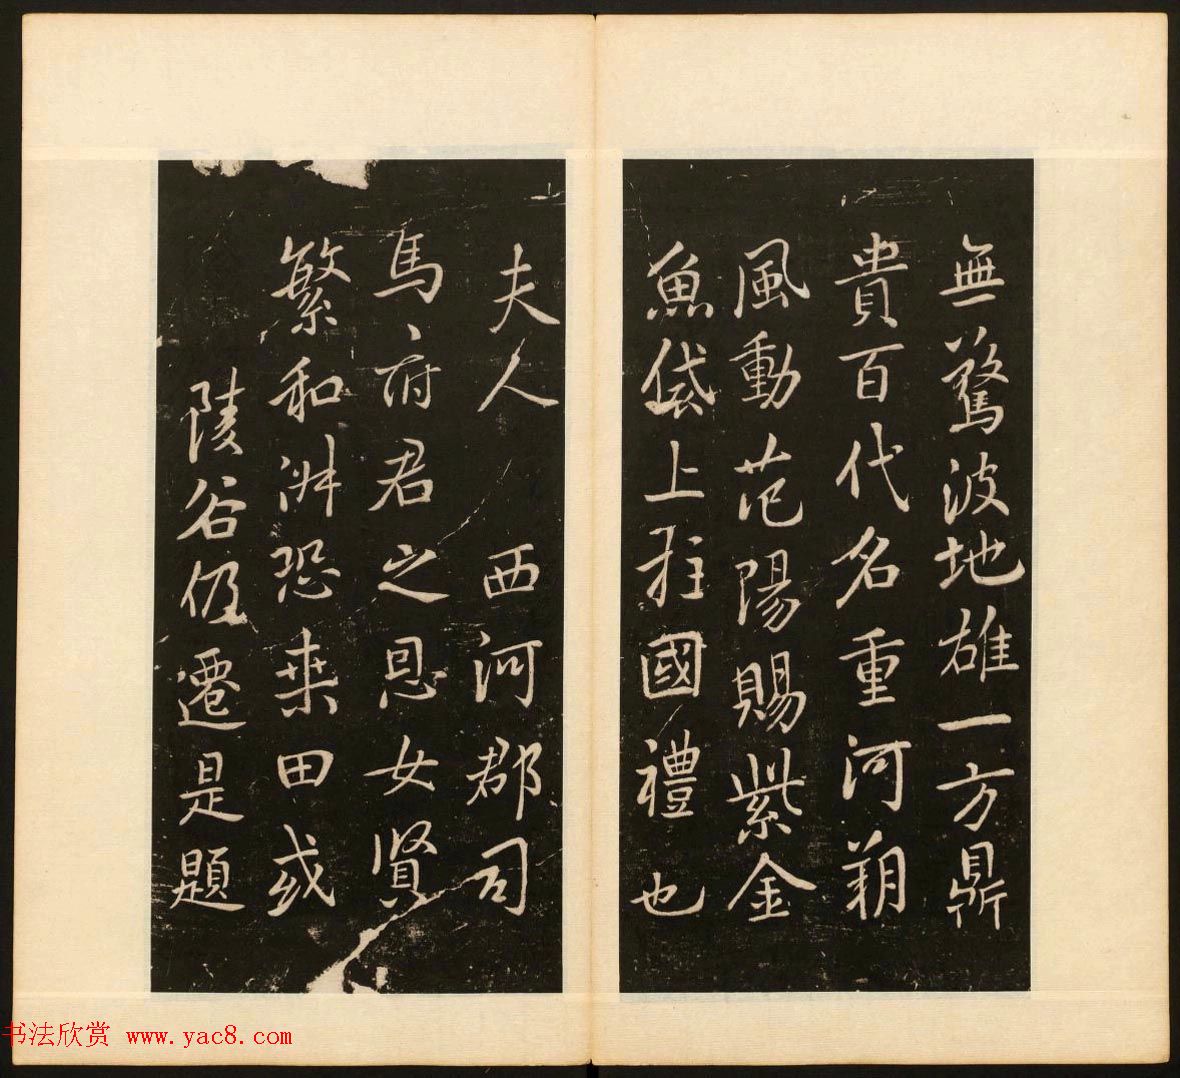 無驚波地雄一方鼎
貴百代名重河朔
風動范陽賜紫金
魚袋上柱國禮也
夫人西河郡司
馬府君之恩女賢
繁和恐桑田或
陵谷仍遷是題
书法欣赏 www.yac8.com